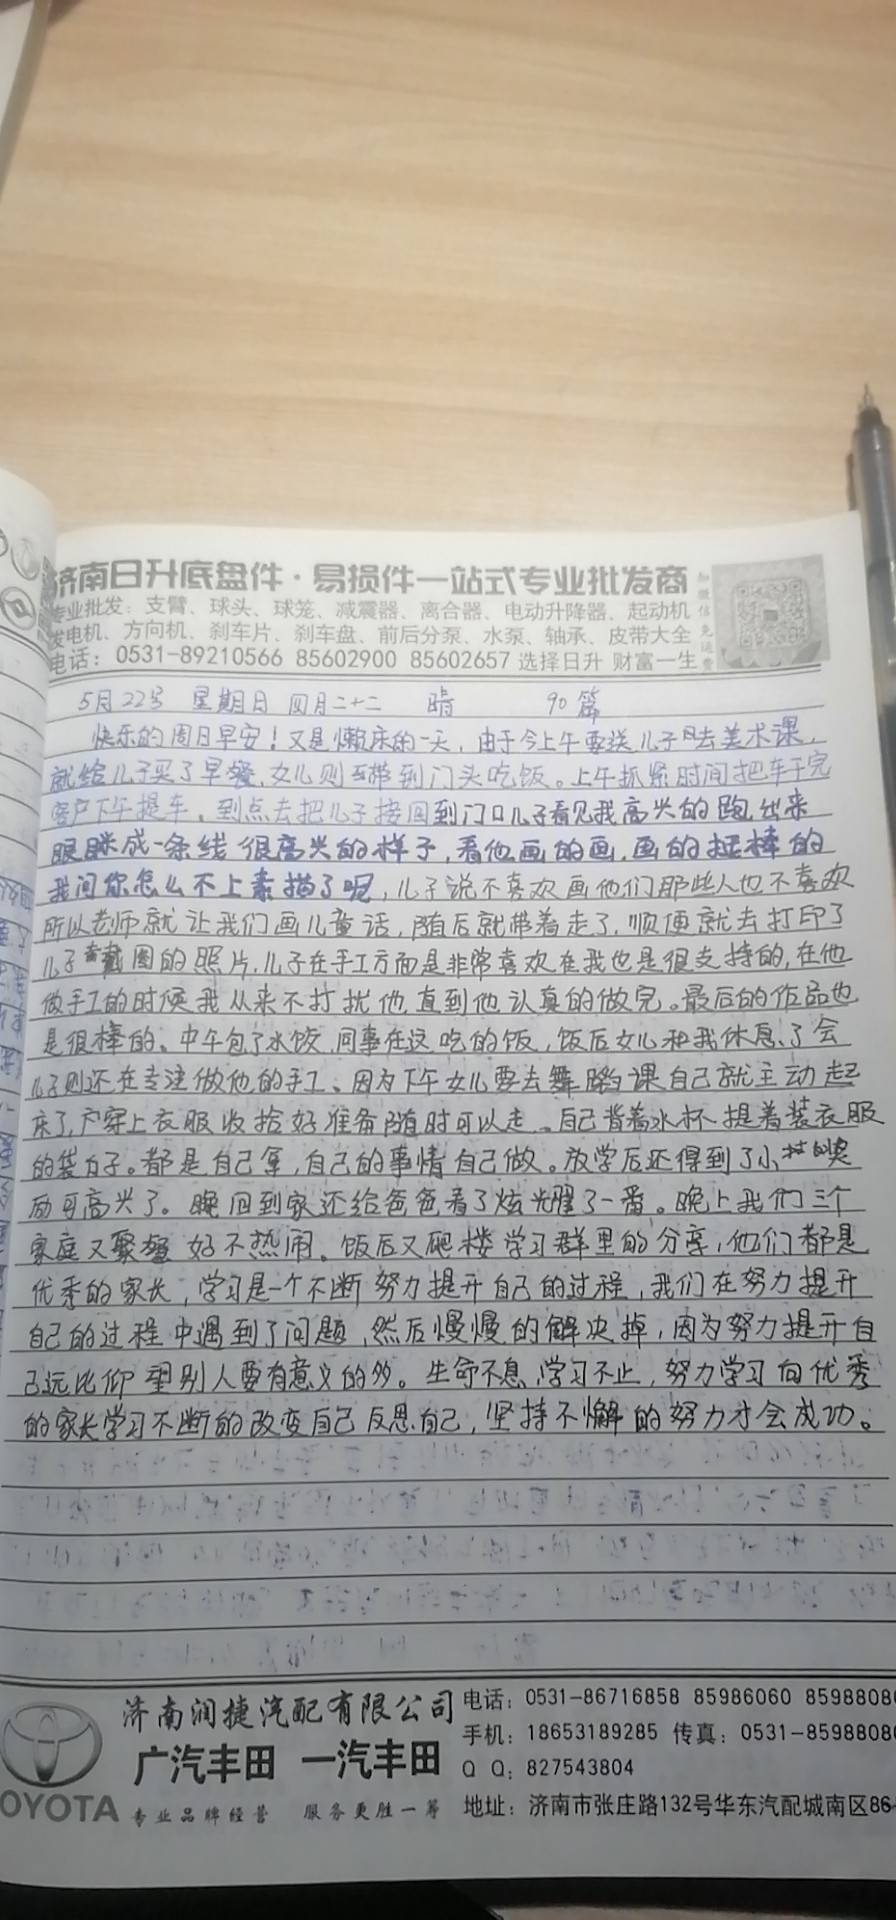 济南日升底盘件·易损件一站式专业批发商
专业批发：支臂、球头、球笼、减震器、离合器、电动升降器、起动机
发电机、方向机、刹车片、刹车盘、前后分泵、水泵、轴承、皮带大全
电话：0531-89210566 85602900 85602657 选择日升 财富一生
加微信免运费
5月22号 星期日 四月二十二 晴 90篇
快乐的周日早安！又是懒床的一天，由于今上午要送儿子去美术课，
就给儿子买了早餐，女儿则带到门头吃饭。上午抓紧时间把车干完
客户下午提车，到点去把儿子接回到门口儿子看见我高兴的跑出来
眼眯成一条线很高兴的样子，看他画的画，画的挺棒的
我问你怎么不上素描了呢，儿子说不喜欢画他们那些人也不喜欢
所以老师就让我们画儿童话，随后就带着走了，顺便就去打印了
儿子戴圈的照片，儿子在手工方面是非常喜欢在我也是很支持的，在他
做手工的时候我从来不打扰他，直到他认真的做完。最后的作品也
是很棒的、中午包了水饺，同事在这吃的饭，饭后女儿和我休息了会
儿子则还在专注做他的手工、因为下午女儿要去舞蹈课自己就主动起
床了，穿上衣服收拾好准备随时可以走。自己背着水杯提着装衣服
的袋子。都是自己拿，自己的事情自己做。放学后还得到了小奖
励可高兴了。晚回到家还给爸爸看了炫耀了一番。晚上我们三个
家庭又聚餐好不热闹。饭后又爬楼学习群里的分享，他们都是
优秀的家长，学习是一个不断努力提升自己的过程，我们在努力提升
自己的过程中遇到了问题，然后慢慢的解决掉，因为努力提升自
己远比仰望别人要有意义的多。生命不息，学习不止，努力学习向优秀
的家长学习不断的改变自己反思自己，坚持不懈的努力才会成功。
济南润捷汽配有限公司 电话：0531-86716858 85986060 8598808
广汽丰田 一汽丰田 手机：18653189285 传真：0531-8598808
Q Q：827543804
OYOTA 专业品牌经营 服务更胜一筹 地址：济南市张庄路132号华东汽配城南区86-